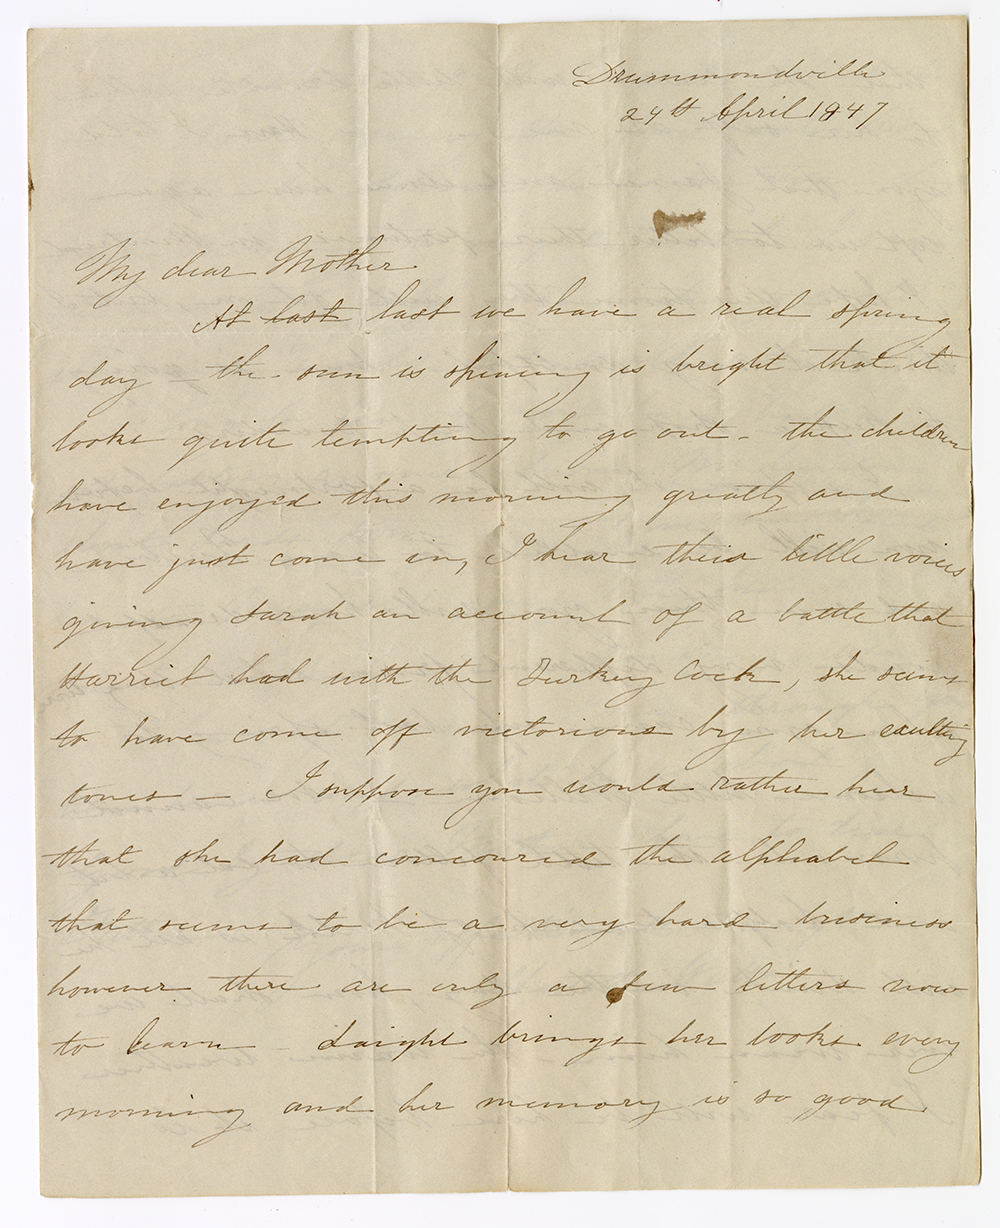 Drummondville
24th April 1847
My dear Mother
At last last we have a real spring
day – the sun is shining is bright that it
looks quite tempting to go out – the children
have enjoyed this morning greatly and
have just come in, I hear their little voices
giving Sarah an account of a battle that
Harriet had with the Turkey Cock, she seems
to have come off victorious by her exulting
tones – I suppose you would rather hear
that she had concoured the alphabet
that seems to be a very hard business
however there are only a few letters now
to learn – brings her books every
morning and her memory is so good